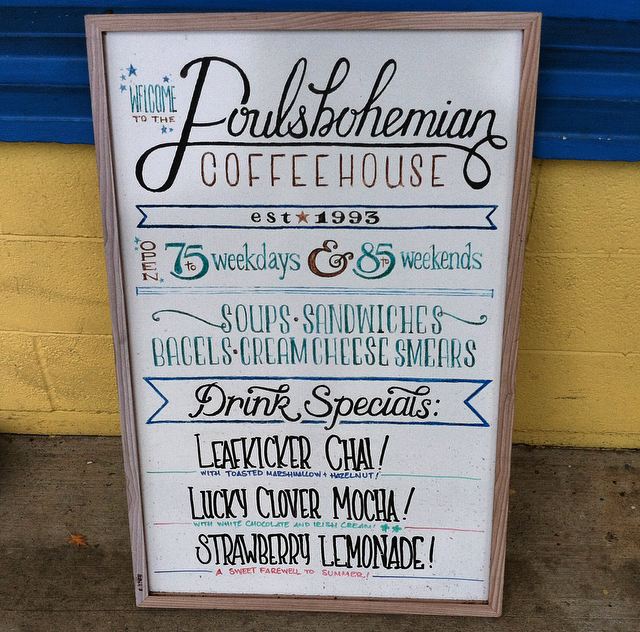 WELCOME
TO THE
Poulsbohemian
COFFEEHOUSE
est★1993
OPEN 7to5 weekdays & 8to5 weekends
SOUPS·SANDWICHES
BAGELS·CREAM CHEESE SMEARS
Drink Specials:
LEAFKICKER CHAI!
WITH TOASTED MARSHMALLOW + HAZELNUT!
LUCKY CLOVER MOCHA!
WITH WHITE CHOCOLATE AND IRISH CREAM!
STRAWBERRY LEMONADE!
A SWEET FAREWELL TO SUMMER!